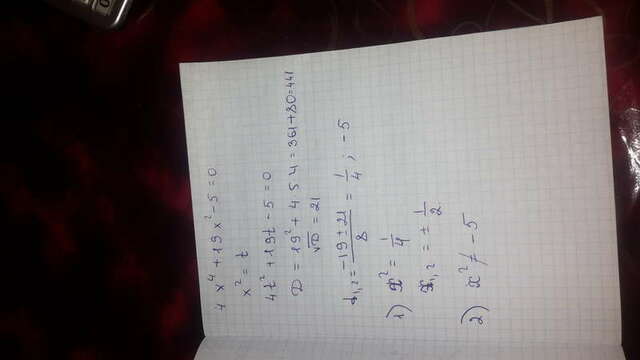 4x⁴ + 19x² - 5 = 0
x² = t
4t² + 19t - 5 = 0
D = 19² + 4 5 4 = 361 + 80 = 441
√D = 21
t₁,₂ = (-19 ± 21)/8 = 1/4 ; -5
1) x² = 1/4
x₁,₂ = ± 1/2
2) x² ≠ -5